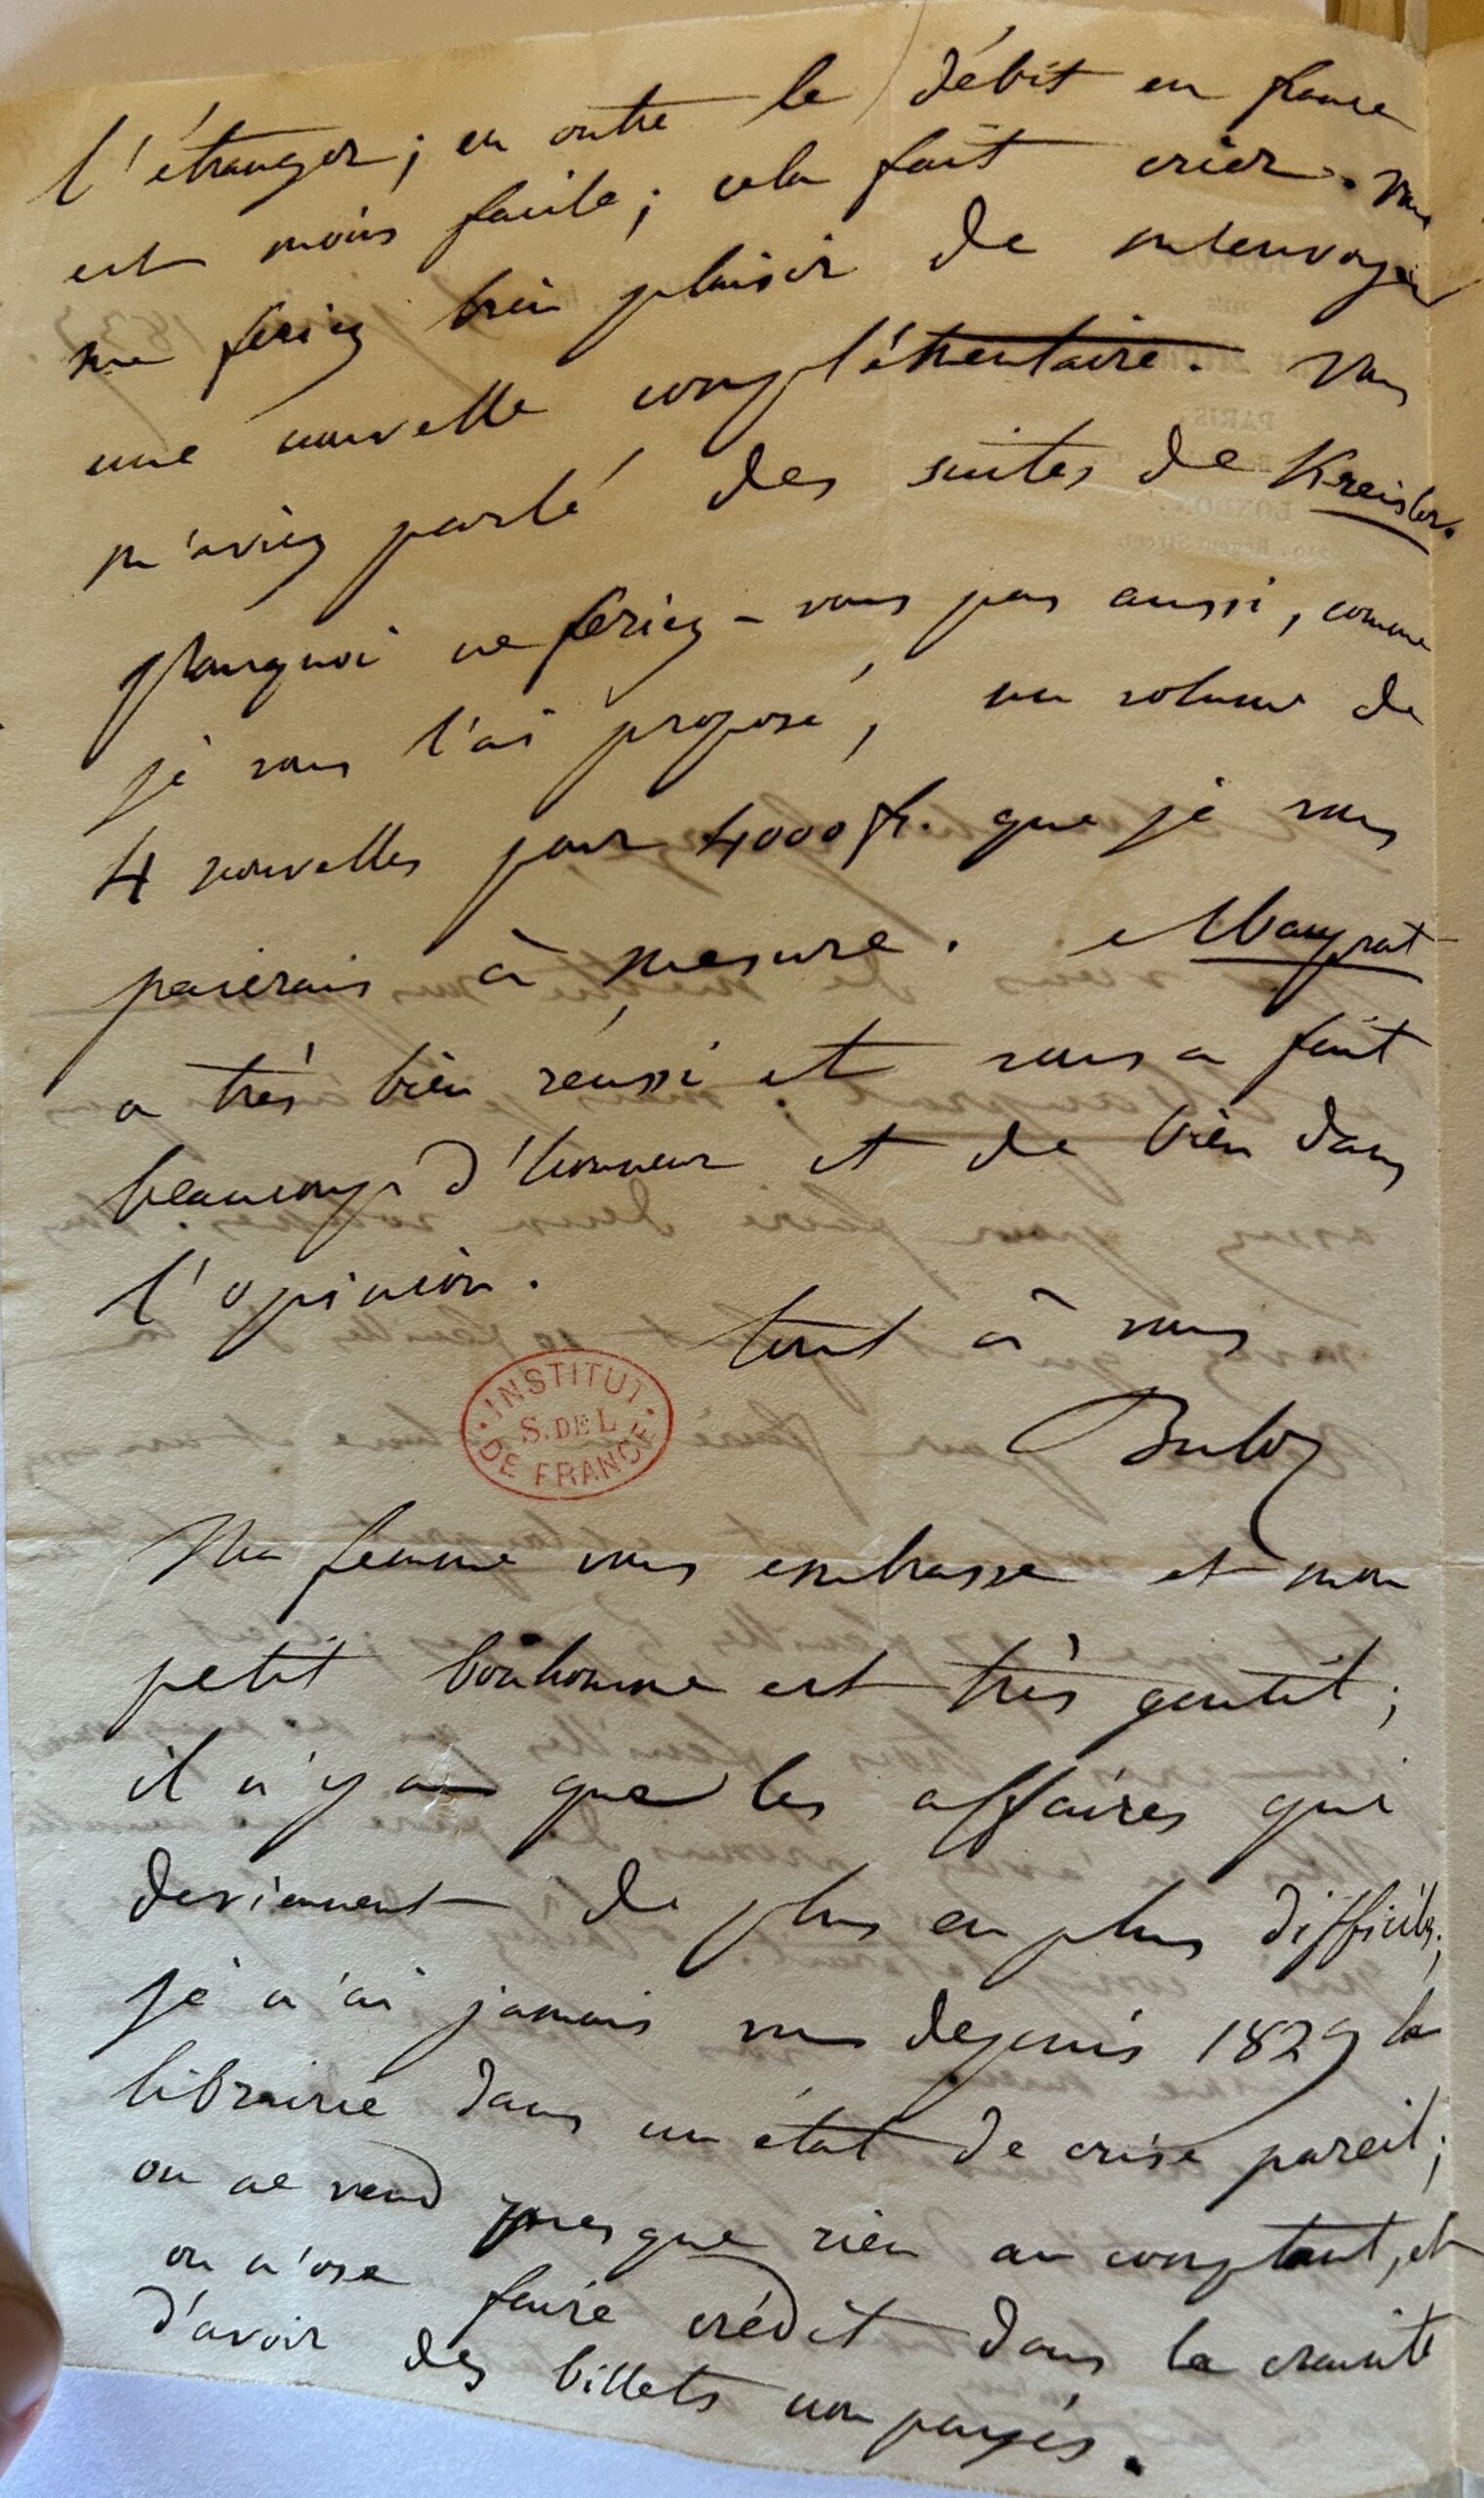 l'étranger ; en outre le débit en france
est moins facile ; cela fait crier. vous
me feriez bien plaisir de m'envoyer
une nouvelle complémentaire. vous
m'aviez parlé des suites de Kreisler.
pourquoi ne feriez-vous pas aussi, comme
je vous l'ai proposé, un volume de
4 nouvelles pour 4000 fr. que je vous
paierais à mesure. Mauprat
a très bien réussi et vous a fait
beaucoup d'honneur et de bien dans
l'opinion.
tout à vous
Buloz
INSTITUT
S. DE L
DE FRANCE
Ma femme vous embrasse et mon
petit bonhomme est très gentil ;
il n'y a que les affaires qui
deviennent de plus en plus difficiles ;
je n'ai jamais vu depuis 1829 la
librairie dans un état de crise pareil ;
on ne vend presque rien au comptant, et
on n'ose faire crédit dans la crainte
d'avoir des billets non payés.